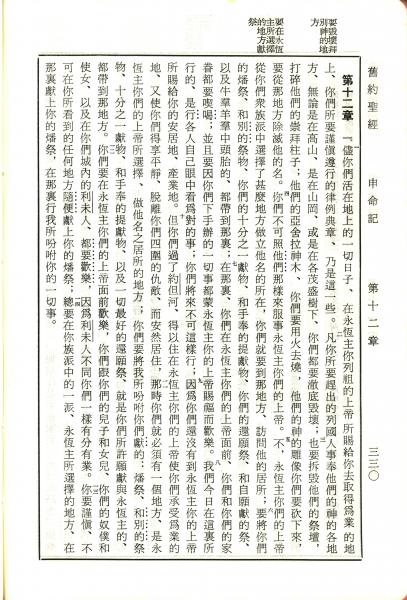 要毀壞拜
別神的地
方
要在永恆
主所選擇
的地方獻
祭
舊約聖經　申命記　第十二章　三三〇
第十二章　『儘你們活在地上的一切日子、在永恆主你列祖的上帝所賜給你去取得爲業的地
上、你們所要謹愼遵行的律例典章、乃是這一些。凡你所要趕出的列國人事奉他們的神的各地
方、無論是在高山、是在山岡、或是在各茂盛樹下、你們都要澈底毀壞；也要拆毀他們的祭壇，
打碎他們的崇拜柱子；他們的亞舍拉神木、你們要用火去燒，他們的神的雕像你們要砍下來，
要從那地方除滅他的名。你們不可照他們那樣來服事永恆主你們的上帝。不、永恆主你們的上帝
從你們衆族派中選擇了甚麼地方做立他名的所在，你們就要到那地方、訪問他的居所；要將你們
的燔祭、和別的祭物、你們的十分之一獻物、和手奉的提獻物、你們的還願祭、和自願的獻祭、
以及牛羣羊羣中頭胎的、都帶到那裏；在那裏、你們在永恆主你們的上帝面前、你們和你們的家
眷都要喫喝；並且要因你們下手辦的一切事都蒙永恆主你的上帝賜福而歡樂。我們今日在這裏所
行的，是行各人自己眼中看爲對的事；你們將來不可這樣行；因爲你們還沒有到永恆主你的上帝
所賜給你的安居地、產業地。但你們過了約但河、得以住在永恆主你們的上帝使你們承受爲業的
地、又使你們得享平靜、脫離你們四圍的仇敵、而安然居住，那時你們就必須有一個地方、是永
恆主你們的上帝所選擇、做他名之居所的地方；你們要將我所吩咐你們獻的：燔祭、和別的祭
物、十分之一獻物、和手奉的提獻物、以及一切最好的還願祭、就是你們所許願獻與永恆主的、
都帶到那地方。你們要在永恆主你們的上帝面前歡樂，你們跟你們的兒子和女兒、你們的奴僕和
使女、以及在你們城內的利未人、都要歡樂，因爲利未人不同你們一樣有分有業。你要謹愼、不
可在你所看到的任何地方隨便獻上你的燔祭；總要在你族派中的一派、永恆主所選擇的地方、在
那裏獻上你的燔祭，在那裏行我所吩咐你的一切事。